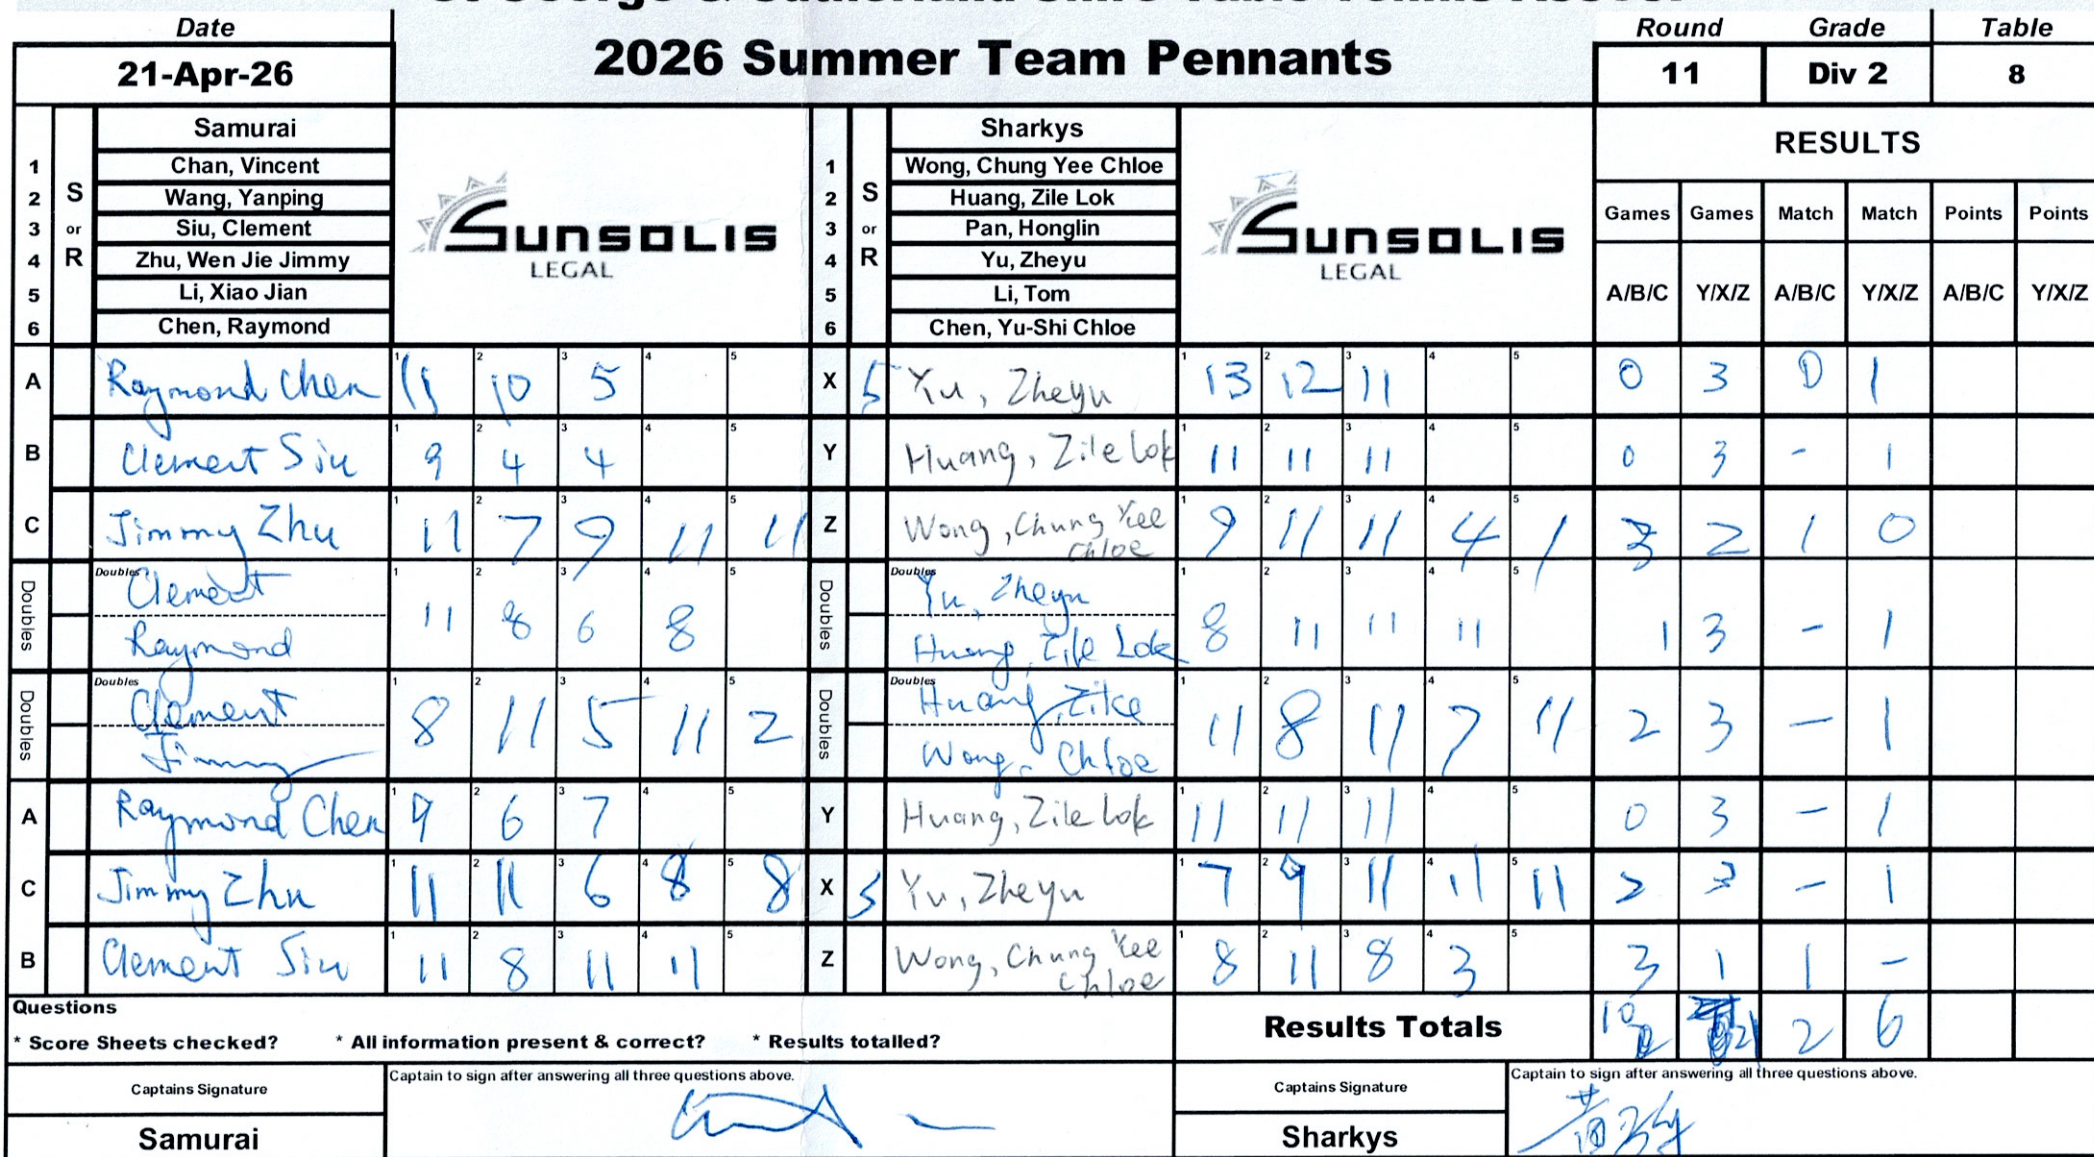 Date
21-Apr-26
2026 Summer Team Pennants
Round Grade Table
11 Div 2 8
Samurai
1 Chan, Vincent
2 Wang, Yanping
3 Siu, Clement
4 Zhu, Wen Jie Jimmy
5 Li, Xiao Jian
6 Chen, Raymond
S or R
SUNSOLIS
LEGAL
Sharkys
1 Wong, Chung Yee Chloe
2 Huang, Zile Lok
3 Pan, Honglin
4 Yu, Zheyu
5 Li, Tom
6 Chen, Yu-Shi Chloe
S or R
SUNSOLIS
LEGAL
RESULTS
Games Games Match Match Points Points
A/B/C Y/X/Z A/B/C Y/X/Z A/B/C Y/X/Z
A Raymond Chen 1 11 2 10 3 5 4 5 X S Yu, Zheyu 1 13 2 12 3 11 4 5 0 3 0 1
B Clement Siu 1 9 2 4 3 4 4 5 Y Huang, Zile Lok 1 11 2 11 3 11 4 5 0 3 - 1
C Jimmy Zhu 1 11 2 7 3 9 4 11 5 11 Z Wong, Chung Yee Chloe 1 9 2 11 3 11 4 4 5 1 3 2 1 0
Doubles Doubles Clement Raymond 1 11 2 8 3 6 4 8 5 Doubles Doubles Yu, Zheyu Huang, Zile Lok 1 8 2 11 3 11 4 11 5 1 3 - 1
Doubles Doubles Clement Jimmy 1 8 2 11 3 5 4 11 5 2 Doubles Doubles Huang, Zile Wong, Chloe 1 11 2 8 3 11 4 7 5 11 2 3 - 1
A Raymond Chen 1 9 2 6 3 7 4 5 Y Huang, Zile Lok 1 11 2 11 3 11 4 5 0 3 - 1
C Jimmy Zhu 1 11 2 11 3 6 4 8 5 8 X S Yu, Zheyu 1 7 2 9 3 11 4 11 5 11 2 3 - 1
B Clement Siu 1 11 2 8 3 11 4 11 5 Z Wong, Chung Yee Chloe 1 8 2 11 3 8 4 3 5 3 1 1 -
Questions
* Score Sheets checked? * All information present & correct? * Results totalled?
Results Totals 2 6
Captains Signature
Captain to sign after answering all three questions above.
Samurai
Captains Signature
Captain to sign after answering all three questions above.
Sharkys